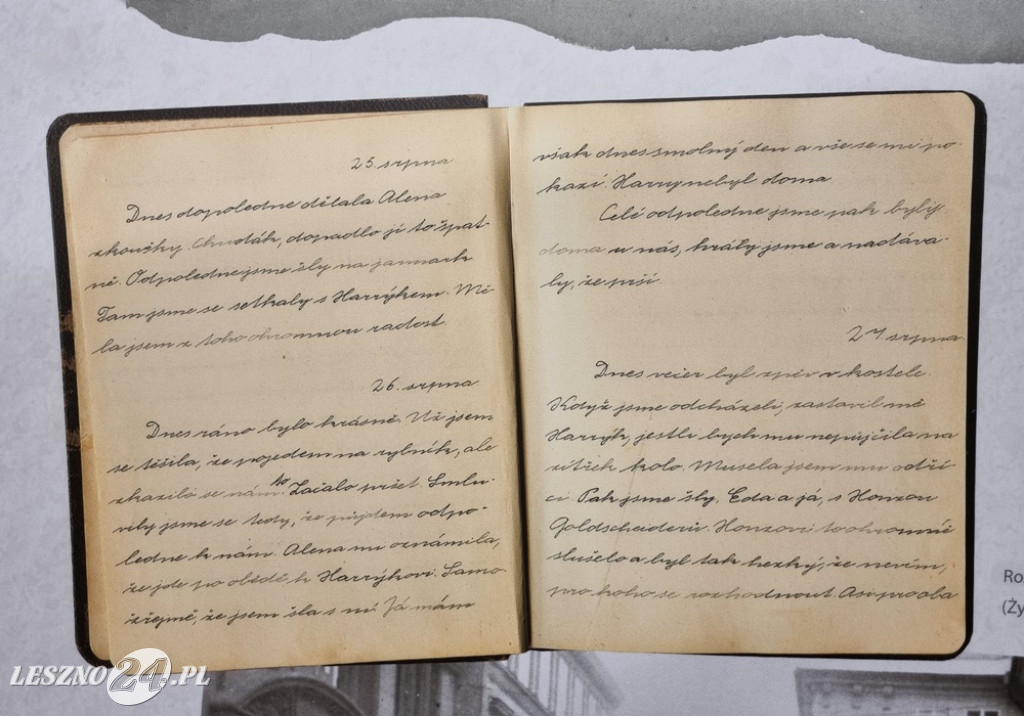 25. srpna
Dnes dopoledne dělala Alena
zkoušky. Chudák, dopadlo jí to špat-
ně. Odpoledne jsme šly na jarmark
Tam jsme se setkaly s Harrýkem. Mě-
la jsem z toho ohromnou radost
26. srpna
Dnes ráno bylo krásně. Už jsem
se těšila, že pojedem na rybník, ale
zkazilo se nám to. Začalo pršet. Smlu-
vily jsme se tedy, že půjdem odpo-
ledne k nám. Alena mi oznámila,
že jde po obědě k Harrýkovi. Samo-
zřejmě, že jsem šla s ní Já mám
však dnes smolný den a vše se mi po-
kazí. Harry nebyl doma
Celé odpoledne jsme pak byly
doma u nás, hrály jsme a nadáva-
ly, že prší.
27 srpna
Dnes večer byl zpěv v kostele.
Když jsme odcházeli, zastavil mě
Harrýk, jestli bych mu nepůjčila na
zítřek kolo. Musela jsem mu odří-
ci Pak jsme šly, Eda a já, s Honzou
Goldscheiderů. Honzovi to ohromně
slušelo a byl tak hezký, že nevím,
pro koho se rozhodnout. Asi pro oba
Ro
(Ży
LESZNO24.PL